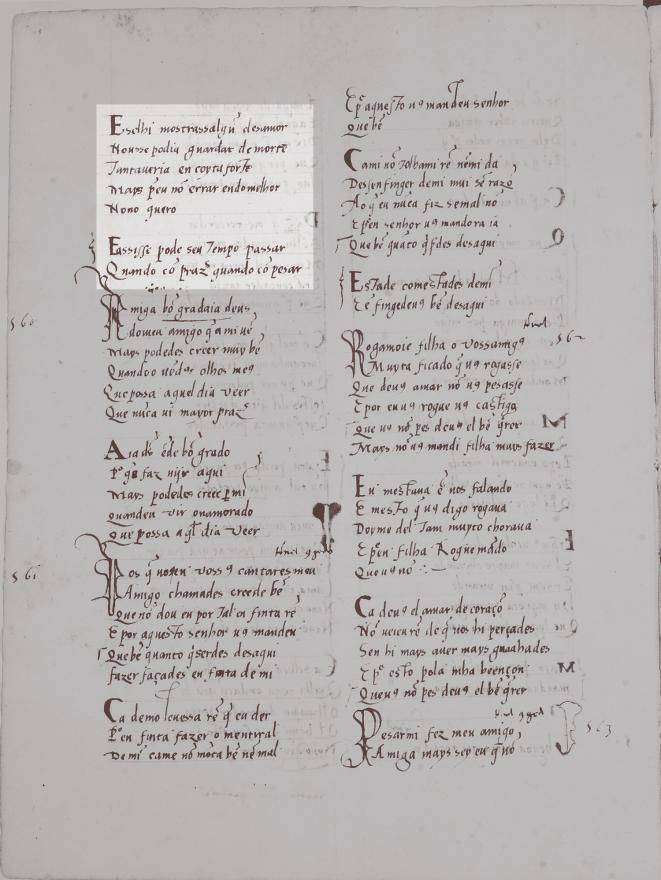 Eselhi mostrassalgũ desamor
Nousse podia guardar de morte
Tantaueria en coyta forte
Mays ꝑeu nõ errar endomelhor
Nono quero
Eassisse pode seu Tempo passar
Quando cõ praz quando cõ pesar
560
Amiga bõ gradaia deus
Do meu amigo q̃ a mi uẽ
Mays podedes creer muy bẽ
Quando o uedes olhos meꝯ
Que possa aquel dia veer
Que nũca ui mayor praz
Aia ds ẽde bõ grado
Pᵒ q̃ o faz nijr aqui
Mays podedes creer ꝑmi
Quandeu vir onamorado
Que possa aql̃ dia veer
561
Pos q̃ uoꝯ en vossꝯ cantares meu
Amigo chamades creede bẽ
Que nõ dou eu por Tal enfinta rẽ
E por aquesto senhor uꝯ mandeu
Que bẽ quanto q̃serdes desaqui
fazer façades enfinta de mi
Ca demo leuessa rẽ q̃ eu der
Por en finta fazer o mentiral
De mi ca me nõ mõca bẽ nẽ mal
E pᵒ aquesto uꝯ mandeu senhor
Que bẽ
Ca mi nõ Tolhami rẽ nẽmi da
Dessenfinger de mi mui sẽ razõ
Ao q̃ eu nunca fiz se mal nõ
E ꝑen senhor uꝯ mandora ia
Que bẽ quãto q̃sdes desaqui
Estade comestades de mi
E ẽfingedeuꝯ bẽ desaqui
562
Rogamoie filha o vossamigꝯ
Muyto ficado q̃ uꝯ rogasse
Que deuꝯ amar nõ uꝯ pesasse
E por en uꝯ rogue uꝯ castigo
Que uꝯ nõ pes deuꝯ el bẽ q̃rer
Mays nõ uꝯ mandi filha mays fazer
Eu mestaua ẽ uos falando
E mesto q̃ uꝯ digo rogaua
Doyme del Tam muyto choraua
E ꝑen filha Roguemãdo
Que uꝯ nõ
Ca deuꝯ el amar de coraçõ
Nõ ueiu rẽ de q̃ uos hi perçades
Sen hi mays auer mays guaahades
E pᵒ esto pola mha beençon
Que uꝯ nõ pes deuꝯ el bẽ q̃rer
563
Pesarmi fez meu amigo,
Amiga mays sey eu q̃ nõ